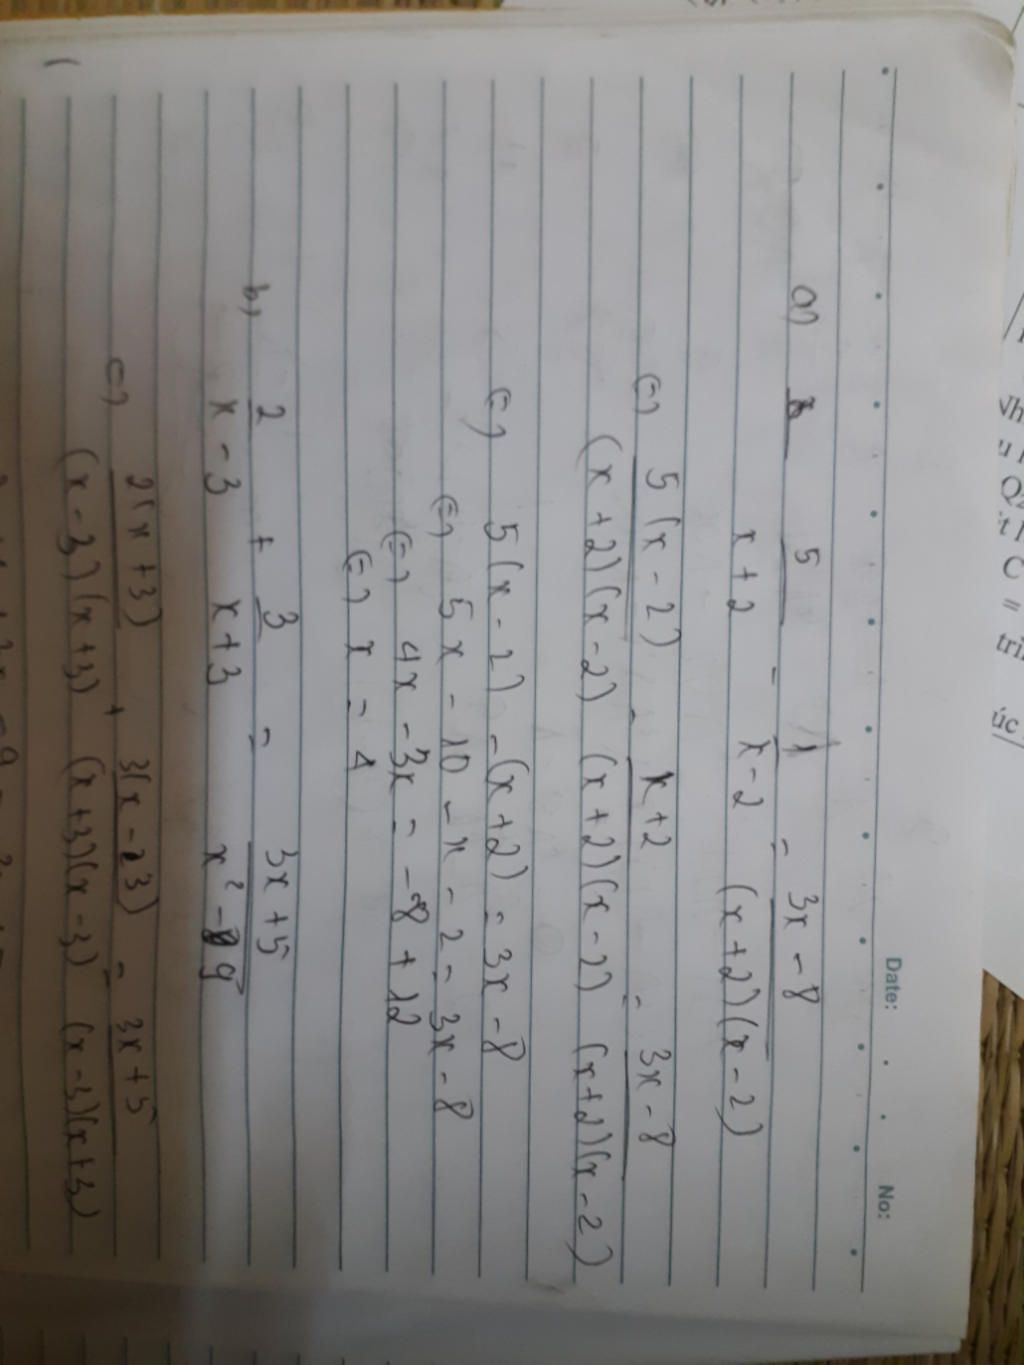 Date: No:
a) 5/(x+2) - 1/(x-2) = (3x-8)/((x+2)(x-2))
(=) 5(x-2)/((x+2)(x-2)) - (x+2)/((x+2)(x-2)) = (3x-8)/((x+2)(x-2))
(=) 5(x-2) - (x+2) = 3x-8
(=) 5x - 10 - x - 2 = 3x - 8
(=) 4x - 3x = -8 + 12
(=) x = 4
b) 2/(x-3) + 3/(x+3) = (3x+5)/(x²-9)
(=) 2(x+3)/((x-3)(x+3)) + 3(x-3)/((x+3)(x-3)) = (3x+5)/((x-3)(x+3))
C
=
úc